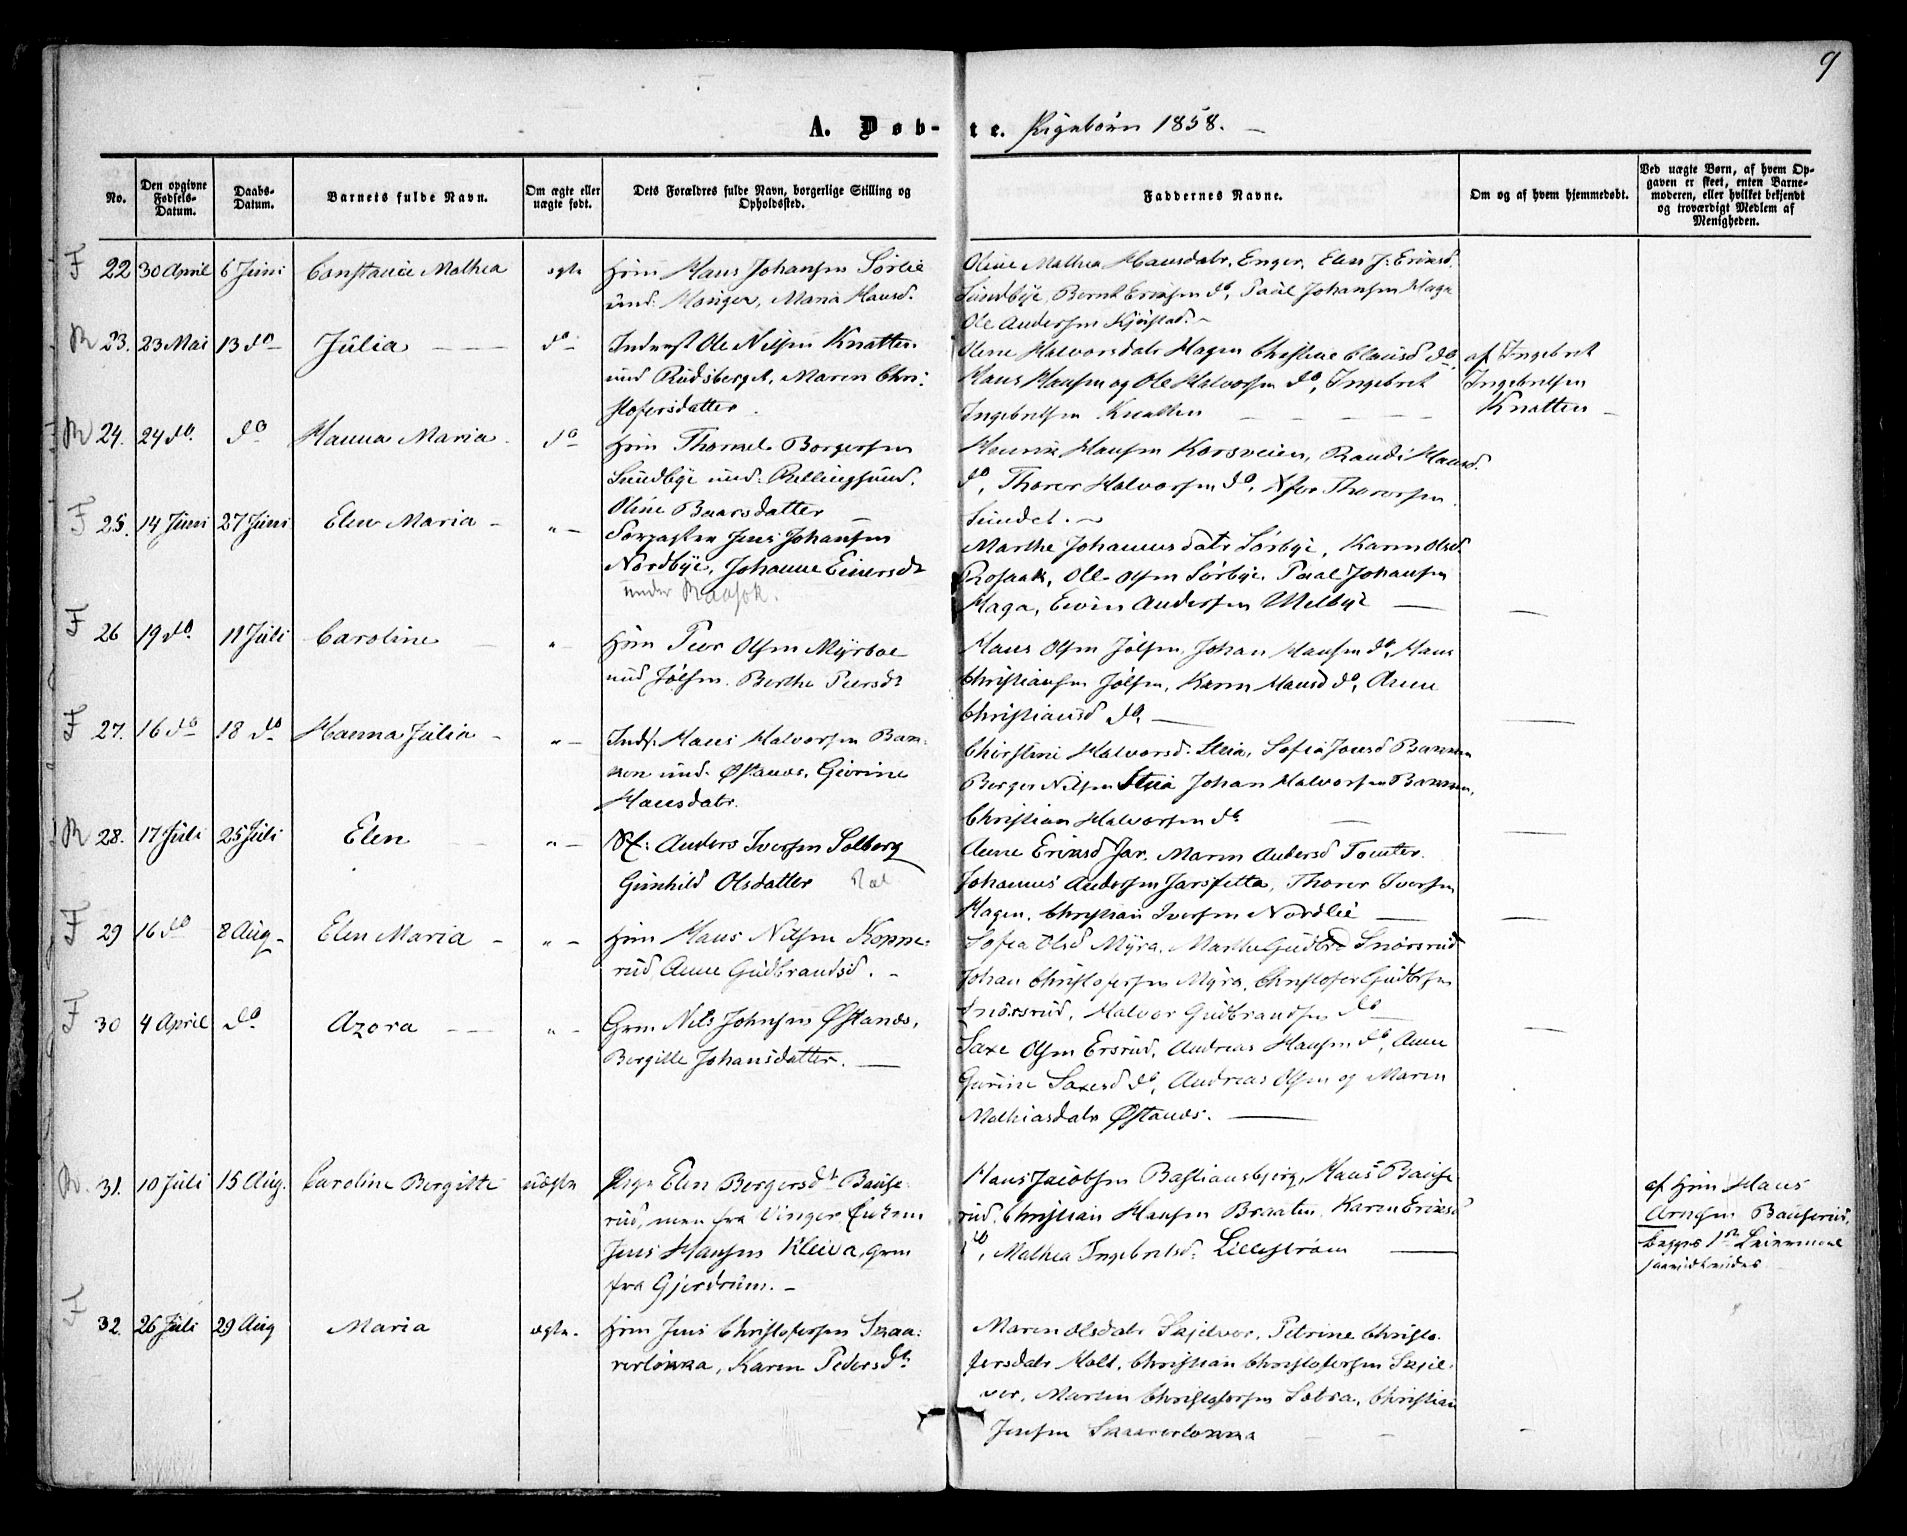 9
A. Døb- te. Pigebørn 1858. —
No.
Den opgivne Fødsels-Datum.
Daabs-Datum.
Barnets fulde Navn.
Om ægte eller uægte født.
Dets Forældres fulde Navn, borgerlige Stilling og Opholdssted.
Faddernes Navne.
Om og af hvem hjemmedøbt.
Ved uægte Børn, af hvem Opgaven er skeet, enten Barnemoderen, eller hvilket bekjendt og troværdigt Medlem af Menigheden.
F 22 30 April 6 Juni Constance Mathea ægte Hsm Hans Johansen Sørlie
und: Hanger, Maria Hansd.
Oline Mathea Hansdatr. Enger, Elen J: Eriksd.
Sundbye, Bernt Eriksen do, Paal Johansen Haga
Ole Andersen Kjørstad. —
R 23. 23 Mai 13 do Julia — do Inderst Ole Nilsen Knatten
und Rudsberget, Maren Chri-
stofersdatter.
Olene Halvorsdatr Hagen Christine Clausd do,
Hans Hansen og Ole Halvorsen do, Ingebret
Ingebretsen Knatten —
af Ingebret
Ingebretsen
Knatten —
R 24. 24 do. do Hanna Maria do Hsm Thorkel Borgersen
Sundbye und: Rellingsund.
Oline Baarsdatter
Henrik Hansen Korsveien, Randi Hansd.
do, Thorer Halvorsen do, Xfer Thorersen
Sundet. —
F 25. 14 Juni 27 Juni Elen Maria „ — Sergeant Jens Johansen
Nordbye, Johanne Einersdt
under Raasok.
Marthe Johannesdatr Sørbye, Karen Olsd.
Rosaak, Ole Olsen Sørbye, Paal Johansen
Haga, Even Andersen Melbye —
F 26 19 do. 11 Juli Caroline — „ Hsm Peer Olsen Myrboe
und Jølsen. Berthe Peersdt
Hans Olsen Jølsen, Johan Hansen do, Hans
Christiansen Jølsen, Karen Hansd do, Anne
Christiansd do. —
F 27. 16 do 18 do Hanna Julia — „ — Inds. Hans Halvorsen Bak-
ken und. Østanes, Gurine
Hansdatr.
Christine Halvorsd. Steia, Sofia Jensd Bakken
Berger Nilsen Steia Johan Halvorsen Bakken,
Christian Halvorsen do. —
R 28. 17 Juli 25 Juli Elen „ — Anders Iversen Solberg
Gunhild Olsdatter
Anne Eriksd Jar, Maren Andersd Tomter.
Johannes Andersen Jarsfetta, Thorer Iversen
Hagen, Christian Iversen Nordlie —
F 29 16 do 8 Aug — Elen Maria — „ — Hsm Hans Nilsen Koppe-
rud, Anne Gudbrandsd. —
Sofia Olsd Myra, Marthe Gudbrd Snørsrud
Johan Christofersen Myra, Christofer Gudbrsen
Snørsrud, Halvor Gudbrandsen do
F 30 4 April do. Azora — „ — Grm. Nils Johnsen Østanes,
Bergitte Johansdatter. —
Saxe Olsen Ersrud, Andreas Hansen do, Anne
Gurine Saxesd do, Andreas Olsen og Maren
Mathiasdatr Østanes. —
R. 31. 10 Juli 15 Aug. Caroline Bergitte uægte Pige Elen Bergersdt Bause-
rud, men fra Vinger,
Jens Hansen Kleiva, Grm
fra Gjerdrum. —
Hans Jacobsen Bastiansbjerg, Hans Bause-
rud, Christian Hansen Braaten, Karen Eriksd
do, Mathea Ingebretsd. Lillestrøm —
af Hsm Hans
Arnesen Bauserud,
begges 1ste Leiermaal
F 32. 26 Juli 29 Aug Maria ægte. Hsm Jens Christofersen Skaa-
rerløkka, Karen Pedersdt.
Maren Olsdatr Skjelver, Petrine Christo-
fersdatr Holt, Christian Christofersen Skjel-
ver, Morten Christofersen Løkka, Christian
Jensen Skaarerløkka